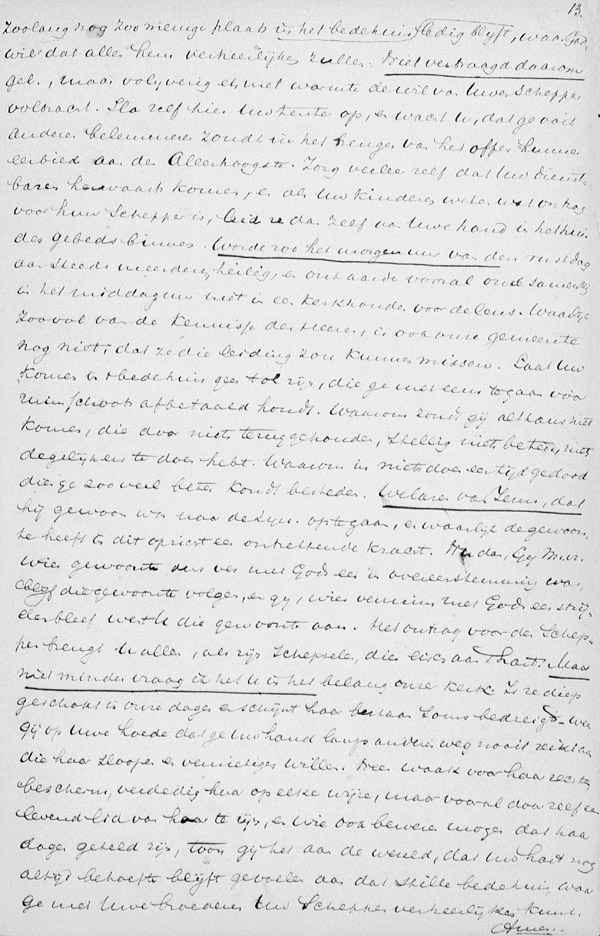 13.
Zoolang nog zoo menige plaats in het bedehuis ledig blijft, waar God
wil dat allen hem verheerlijken zullen. Niet vertraagd daarom
gel., maar volijverig en met warmte de wil van Uwen Schepper
volbracht. Sla zelf hier Uw tente op, en wacht U, dat ge ooit
anderen belemmeren zoudt in het brengen van het offer hunner
eerbied aan den Allerhoogste. Zorg veeleer zelf dat Uw dienst-
baren herwaarts komen, en als Uw kinderen weten wat ontzag
voor hun Schepper is, leid ze dan zelf aan Uwe hand in het huis
des gebeds binnen. Worde zoo het morgenuur van den rustdag
aan steeds meerderen heilig, en ontaarde vooral onze samenkomst
in het middaguur niet in een kerkhouden voor de leus. Waarlijk
Zoo vol van de kennisse des Heeren, is ook onze gemeente
nog niet, dat ze die leiding zou kunnen missen. Laat Uw
komen in 't bedehuis geen tol zijn, die ge met eens te gaan voor
ruimschoots afbetaald houdt. Waarom zoudt gij althans niet
komen, die door niets teruggehouden, stellig niets beters, niets
degelijkers te doen hebt. Waarom in nietsdoen een tijd gedood
die ge zooveel beter kondt besteden. Weleer van Jezus, dat
hij gewoon was naar de Syn. op te gaan, en waarlijk de gewoon-
te heeft in dit opzicht een ontzettende kracht. Nu dan, Gij M.v.
wier gewoonte dus ver met Gods eer in overeenstemming was,
blijf die gewoonte volgen, en gij, wier verzuim met Gods eer strij-
dende bleef werk U die gewoonte aan. Het ontzag voor den Schep-
per brengt U allen, als zijn Schepselen, die eisch aan 't hart. Maar
niet minder vraag ik het U in het belang onzer kerk. Is ze diep
geschokt in onze dagen en schijnt haar bestaan soms bedreigd, wees
gij op Uwe hoede dat ge Uw hand langs anderen weg nooit reikt aan
die haar sloopen en vernietigen willen. Neen waak voor haar rechten
bescherm, verdedig haar op elke wijze, maar vooral door zelf een
levend lid van haar te zijn, en wie ook beweren mogen dat haar
dagen geteld zijn, toon gij het aan de wereld, dat Uw hart nog
altijd behoefte blijft gevoelen aan dat stille bedehuis, waar
ge met Uwe broederen Uw Schepper verheerlijken kunt.
Amen.